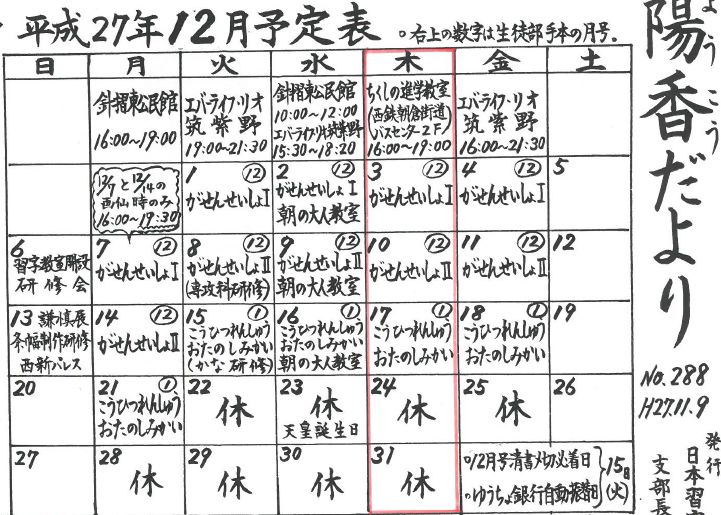 平成27年12月予定表 ○右上の数字は生徒部手本の月号。
日 月 火 水 木 金 土
針摺東公民館
16:00~19:00
エバーライフ・リオ
筑紫野
19:00~21:30
針摺東公民館
10:00~12:00
エバーライフ・リオ筑紫野
15:30~18:20
ちくしの進学教室
(西鉄朝倉街道)
バスセンター2F
16:00~19:00
エバーライフ・リオ
筑紫野
16:00~21:30
12/7と12/14の
画仙時のみ
16:00~19:30
1 ⑫
がせんせいしょⅠ
2 ⑫
がせんせいしょⅠ
朝の大人教室
3 ⑫
がせんせいしょⅠ
4 ⑫
がせんせいしょⅠ
5
6
習字教室開設
研修会
7 ⑫
がせんせいしょⅠ
8 ⑫
がせんせいしょⅡ
(専攻科研修)
9 ⑫
がせんせいしょⅡ
朝の大人教室
10 ⑫
がせんせいしょⅡ
11 ⑫
がせんせいしょⅡ
12
13 謙慎展
条幅制作研修
西新パレス
14 ⑫
がせんせいしょⅡ
15 ①
こうひつれんしゅう
おたのしみかい
(かな研修)
16 ①
こうひつれんしゅう
おたのしみかい
朝の大人教室
17 ①
こうひつれんしゅう
おたのしみかい
18 ①
こうひつれんしゅう
おたのしみかい
19
20
21 ①
こうひつれんしゅう
おたのしみかい
22
休
23
休
天皇誕生日
24
休
25
休
26
27
28
休
29
休
30
休
31
休
○12月号清書〆切必着日
○ゆうちょ銀行自動振替日
15日
(火)
陽香だより
ようこう
No.288
H27.11.9
発行
日本習字
支部長